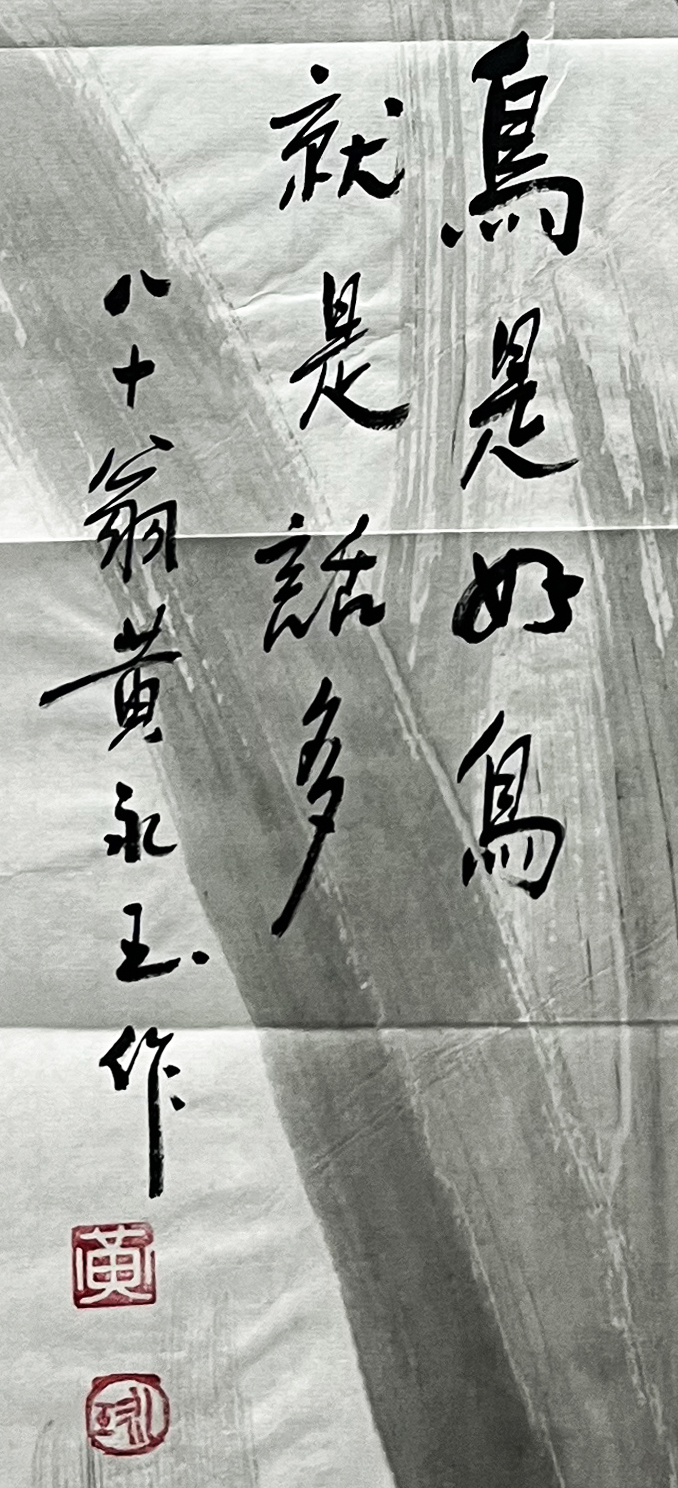 鳥是好鳥
就是話多
八十翁黄永玉作
黄